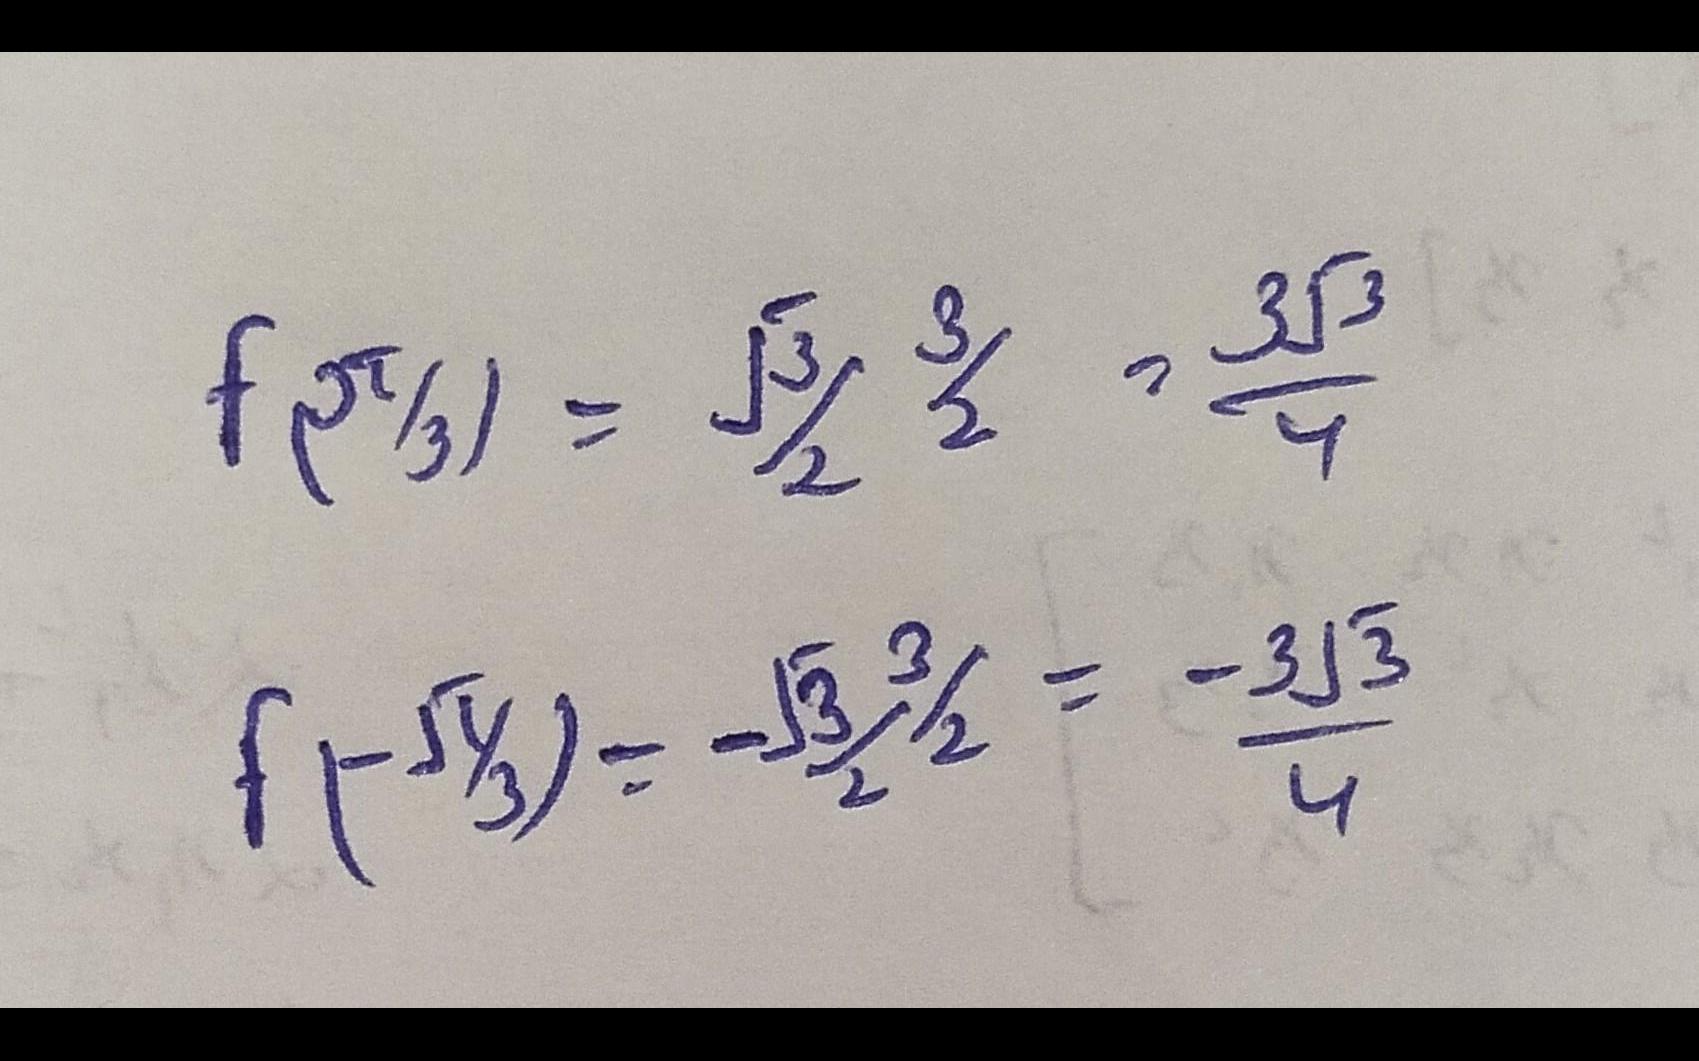 f(π/3) = √3/2 3/2 = 3√3/4
f(-π/3) = -√3/2 3/2 = -3√3/4